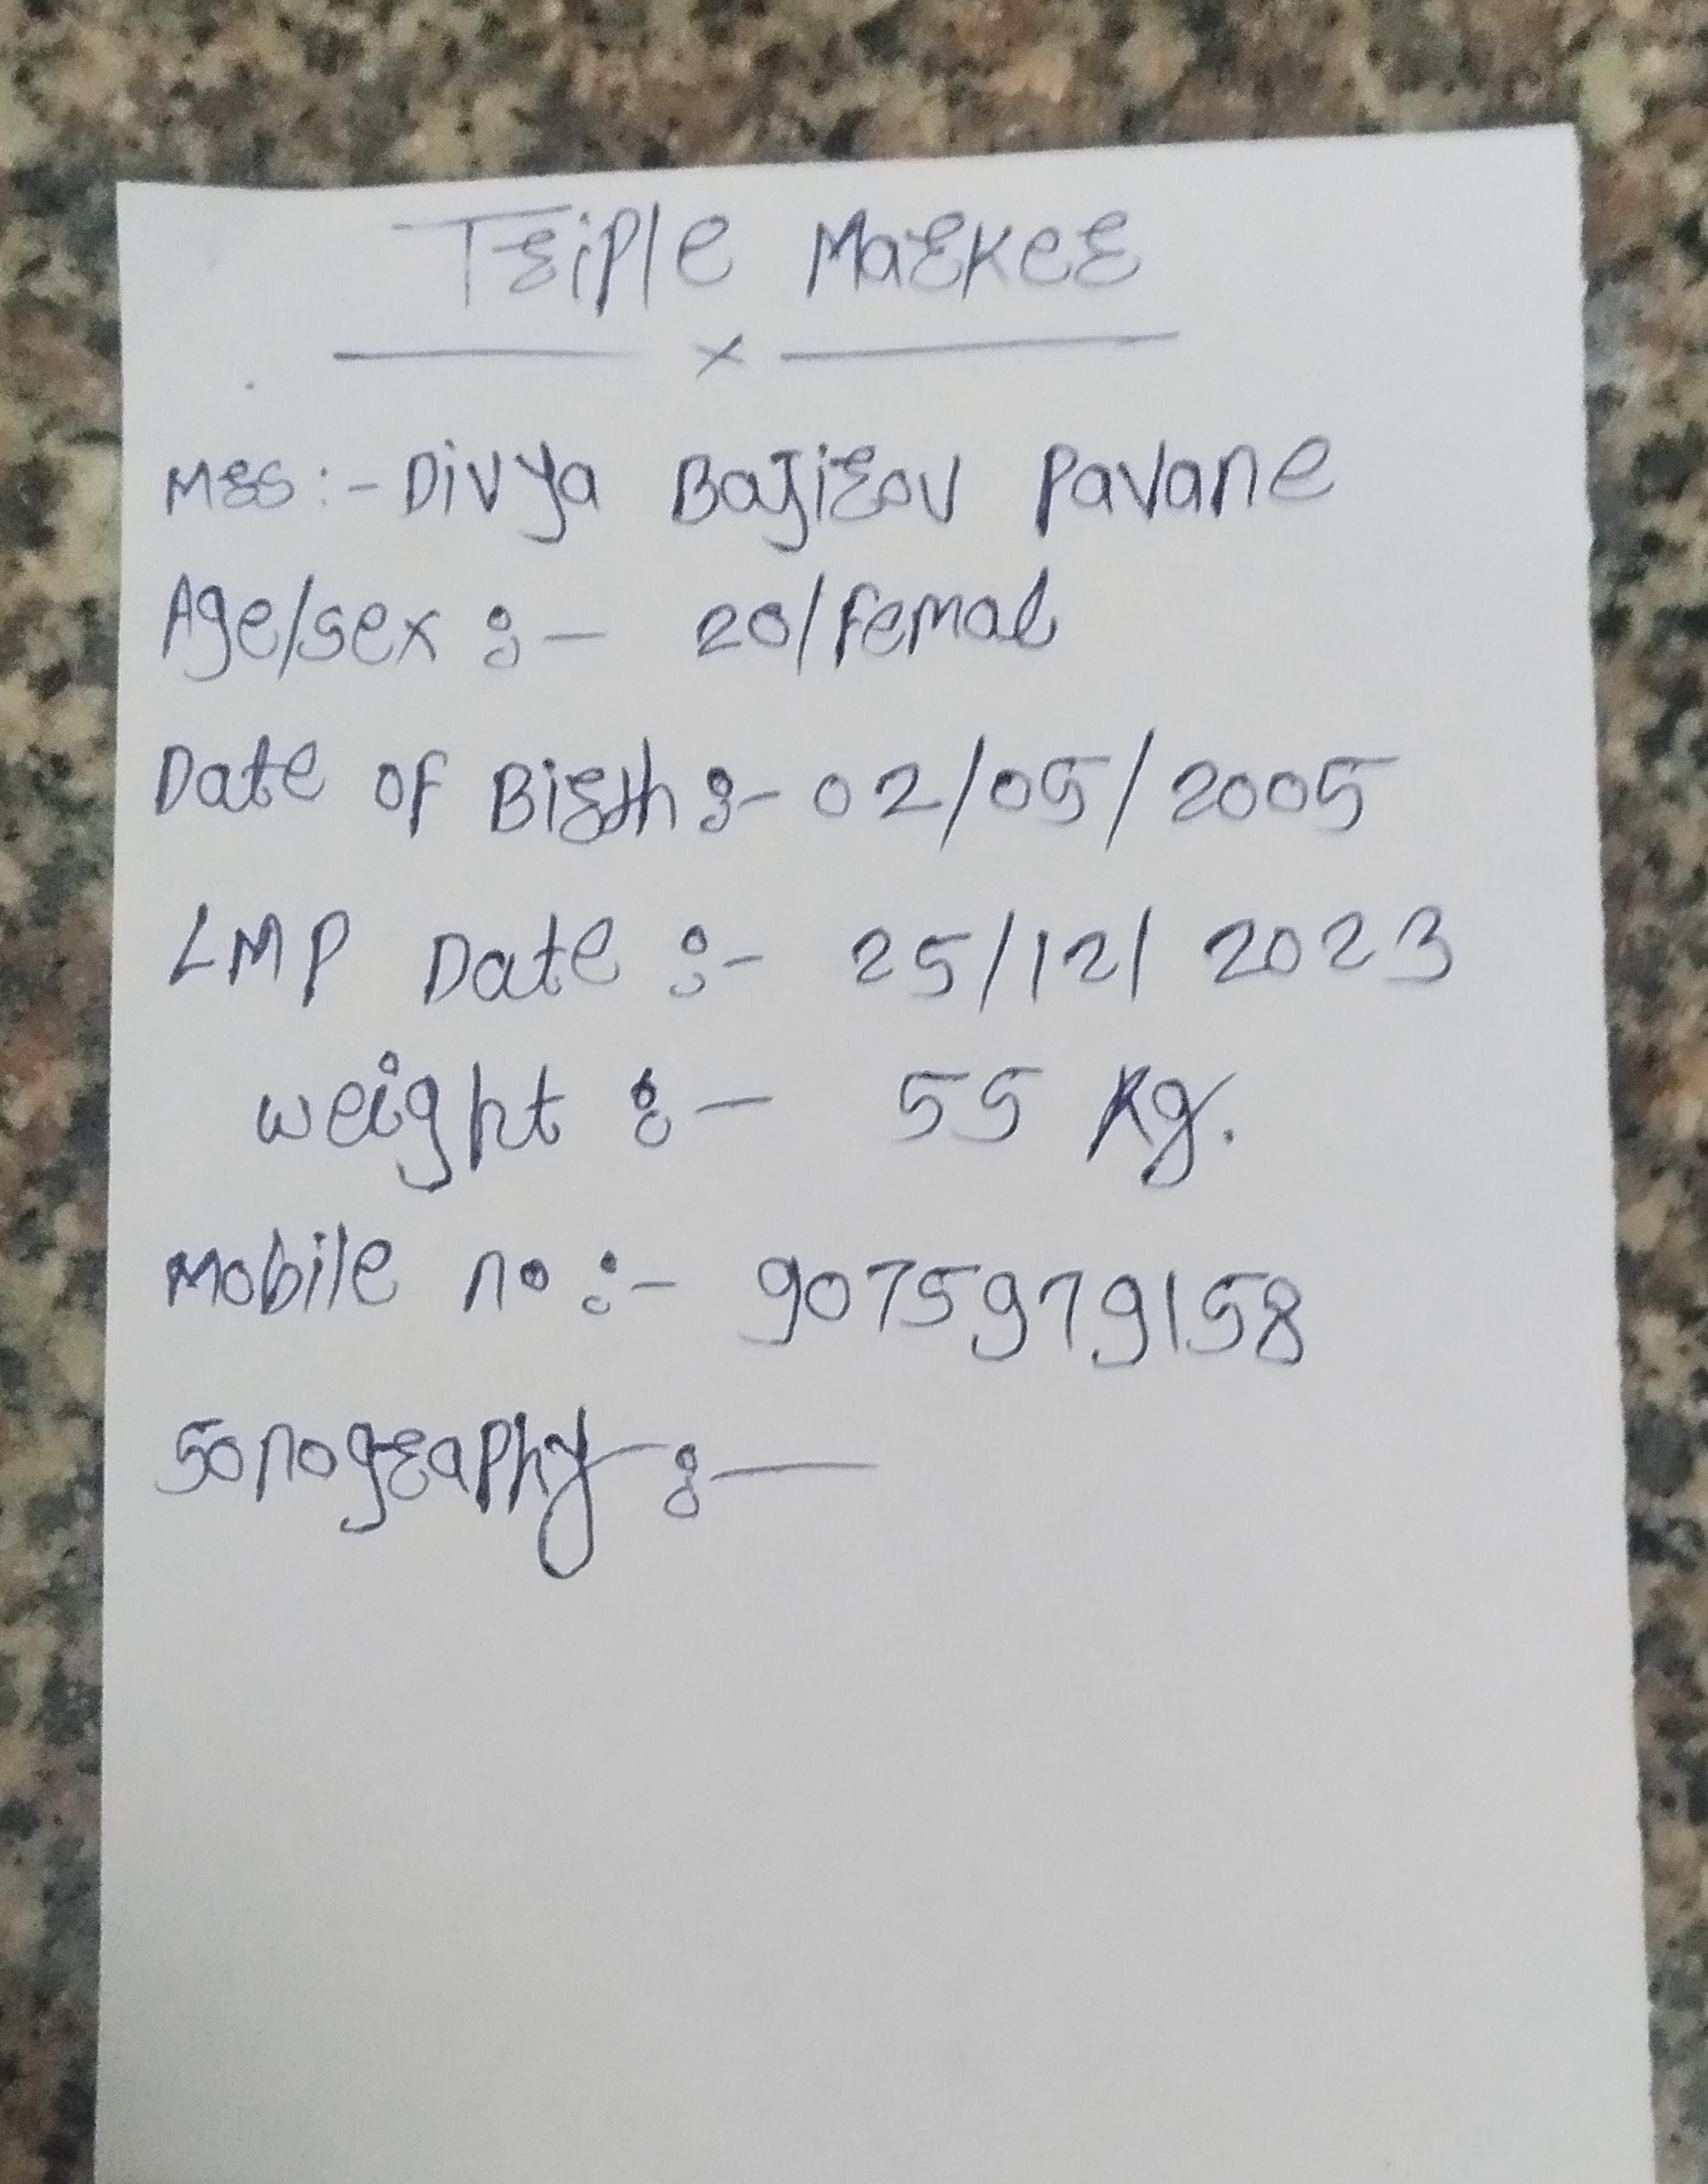 Triple Marker
x
Mrs :- Divya Bajirov Pavane
Age/sex :- 20/Femal
Date of Birth :- 02/05/2005
LMP Date :- 25/12/2023
weight :- 55 Kg.
Mobile no :- 9075979158
Sonography :-